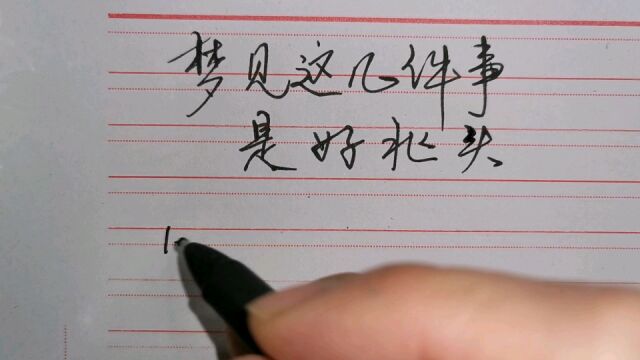 梦见这几件事
是好兆头
1